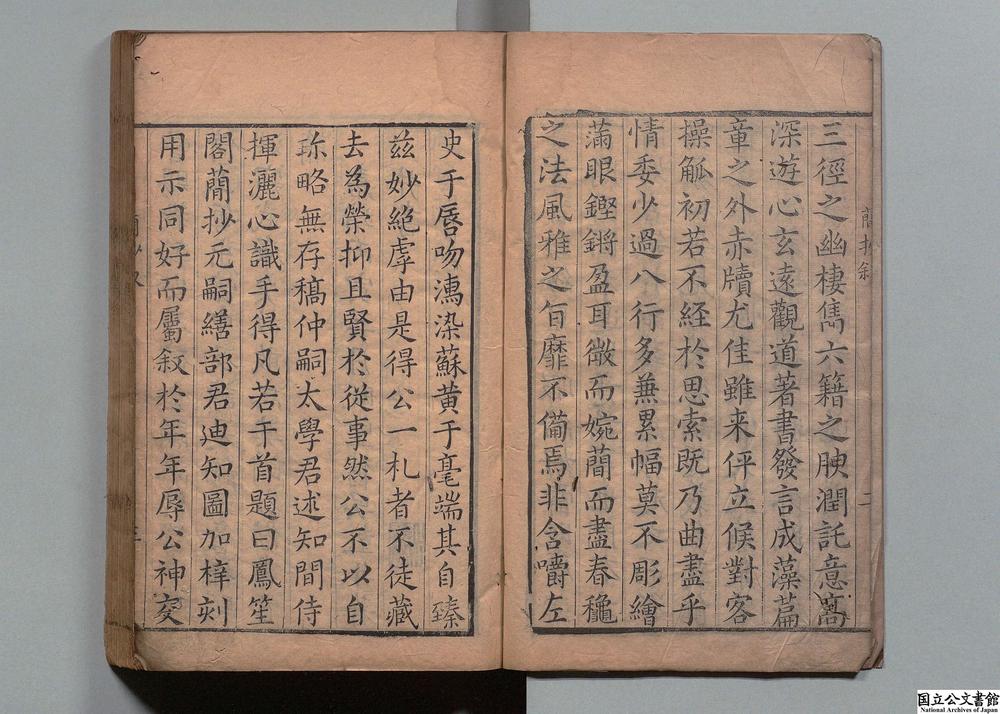 三徑之幽棲雋六籍之腴潤託意窩
深遊心玄遠觀道著書發言成藻篇
章之外赤牘尤佳雖来伻立候對客
操觚初若不經於思索既乃曲盡乎
情委少過八行多兼累幅莫不彫繪
滿眼鏗鏘盈耳微而婉蕳而盡春穠
之法風雅之旨靡不備焉非含嚼左
史于唇吻濡染蘇黄于毫端其自臻
兹妙絶虖由是得公一札者不徒藏
去為榮抑且賢於従事然公不以自
珎略無存稿仲嗣太學君述知間侍
揮灑心識手得凡若干首題曰鳳笙
閣蕳抄元嗣繕部君迪知圖加梓刻
用示同好而屬叙於年年辱公神交
蕳抄叙
二
国立公文書館
National Archives of Japan